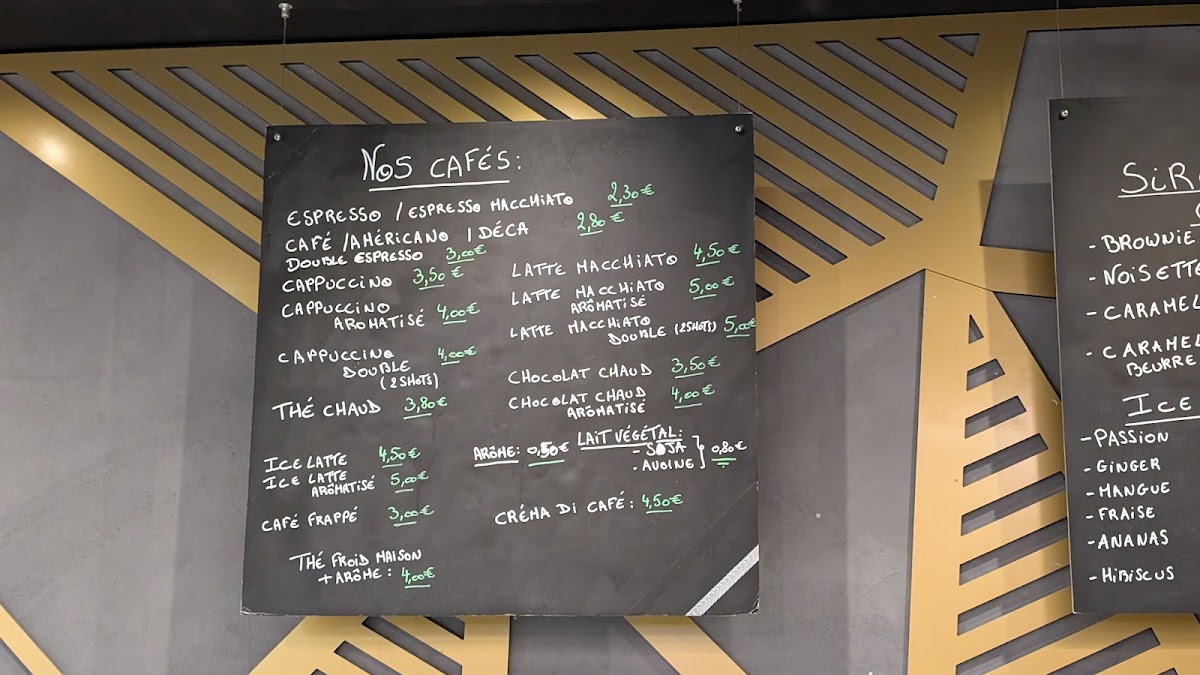 NOS CAFÉS:
ESPRESSO / ESPRESSO MACCHIATO 2,30€
CAFÉ / AMÉRICANO / DÉCA 2,80€
DOUBLE ESPRESSO 3,00€
CAPPUCCINO 3,50€
CAPPUCCINO
AROMATISÉ 4,00€
CAPPUCCINO 4,00€
DOUBLE
(2 SHOTS)
THÉ CHAUD 3,80€
ICE LATTE 4,50€
ICE LATTE
ARÔMATISÉ 5,00€
CAFÉ FRAPPÉ 3,00€
THÉ FROID MAISON
+ ARÔME: 4,00€
LATTE MACCHIATO 4,50€
LATTE MACCHIATO 5,00€
ARÔMATISÉ
LATTE MACCHIATO
DOUBLE (2 SHOTS) 5,00€
CHOCOLAT CHAUD 3,50€
CHOCOLAT CHAUD 4,00€
ARÔMATISÉ
ARÔME: 0,50€ LAIT VÉGÉTAL:
- SOJA
- AVOINE } 0,80€
CRÉMA DI CAFÉ: 4,50€
- BROWNIE
- NOISETTE
- CARAMEL
- CARAMEL
BEURRE
ICE
- PASSION
- GINGER
- MANGUE
- FRAISE
- ANANAS
- HIBISCUS